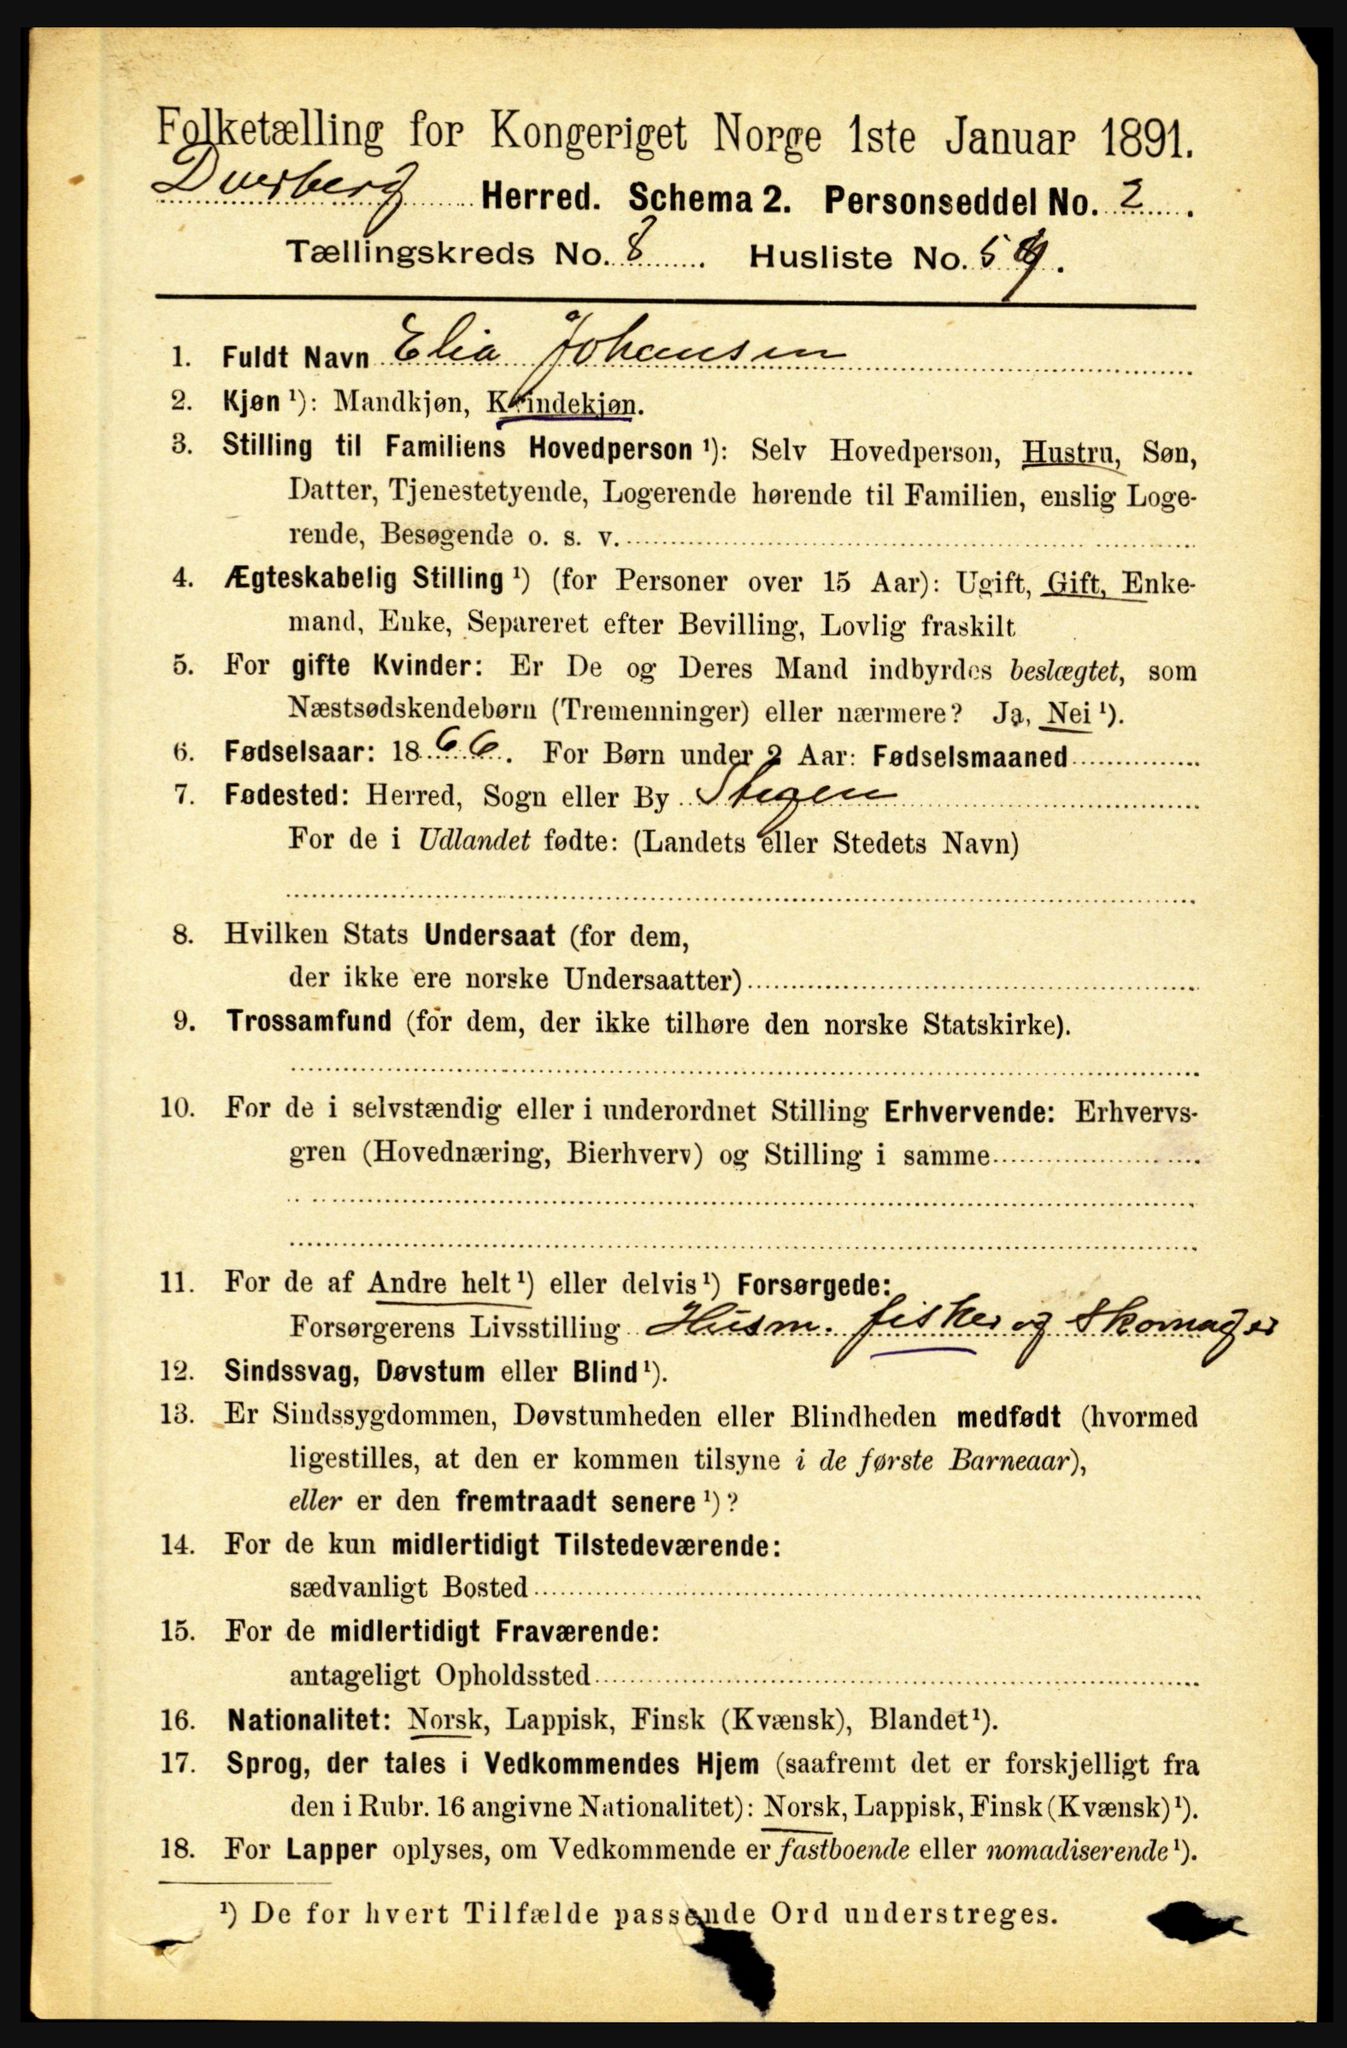 Folketælling for Kongeriget Norge 1ste Januar 1891.
Dverberg Herred. Schema 2. Personseddel No. 2.
Tællingskreds No. 8. Husliste No. 59.
1. Fuldt Navn Elia Johansen
2. Kjøn ¹): Mandkjøn, Kvindekjøn.
3. Stilling til Familiens Hovedperson ¹): Selv Hovedperson, Hustru, Søn,
Datter, Tjenestetyende, Logerende hørende til Familien, enslig Loge-
rende, Besøgende o. s. v.
4. Ægteskabelig Stilling ¹) (for Personer over 15 Aar): Ugift, Gift, Enke-
mand, Enke, Separeret efter Bevilling, Lovlig fraskilt
5. For gifte Kvinder: Er De og Deres Mand indbyrdes beslægtet, som
Næstsødskendebørn (Tremenninger) eller nærmere? Ja, Nei ¹).
6. Fødselsaar: 1866. For Børn under 2 Aar: Fødselsmaaned
7. Fødested: Herred, Sogn eller By Stegen
For de i Udlandet fødte: (Landets eller Stedets Navn)
8. Hvilken Stats Undersaat (for dem,
der ikke ere norske Undersaatter)
9. Trossamfund (for dem, der ikke tilhøre den norske Statskirke).
10. For de i selvstændig eller i underordnet Stilling Erhvervende: Erhvervs-
gren (Hovednæring, Bierhverv) og Stilling i samme
11. For de af Andre helt ¹) eller delvis ¹) Forsørgede:
Forsørgerens Livsstilling Husm. fisker og Skomager
12. Sindssvag, Døvstum eller Blind ¹).
13. Er Sindssygdommen, Døvstumheden eller Blindheden medfødt (hvormed
ligestilles, at den er kommen tilsyne i de første Barneaar),
eller er den fremtraadt senere ¹)?
14. For de kun midlertidigt Tilstedeværende:
sædvanligt Bosted
15. For de midlertidigt Fraværende:
antageligt Opholdssted
16. Nationalitet: Norsk, Lappisk, Finsk (Kvænsk), Blandet ¹).
17. Sprog, der tales i Vedkommendes Hjem (saafremt det er forskjelligt fra
den i Rubr. 16 angivne Nationalitet): Norsk, Lappisk, Finsk (Kvænsk) ¹).
18. For Lapper oplyses, om Vedkommende er fastboende eller nomadiserende ¹).
¹) De for hvert Tilfælde passende Ord understreges.